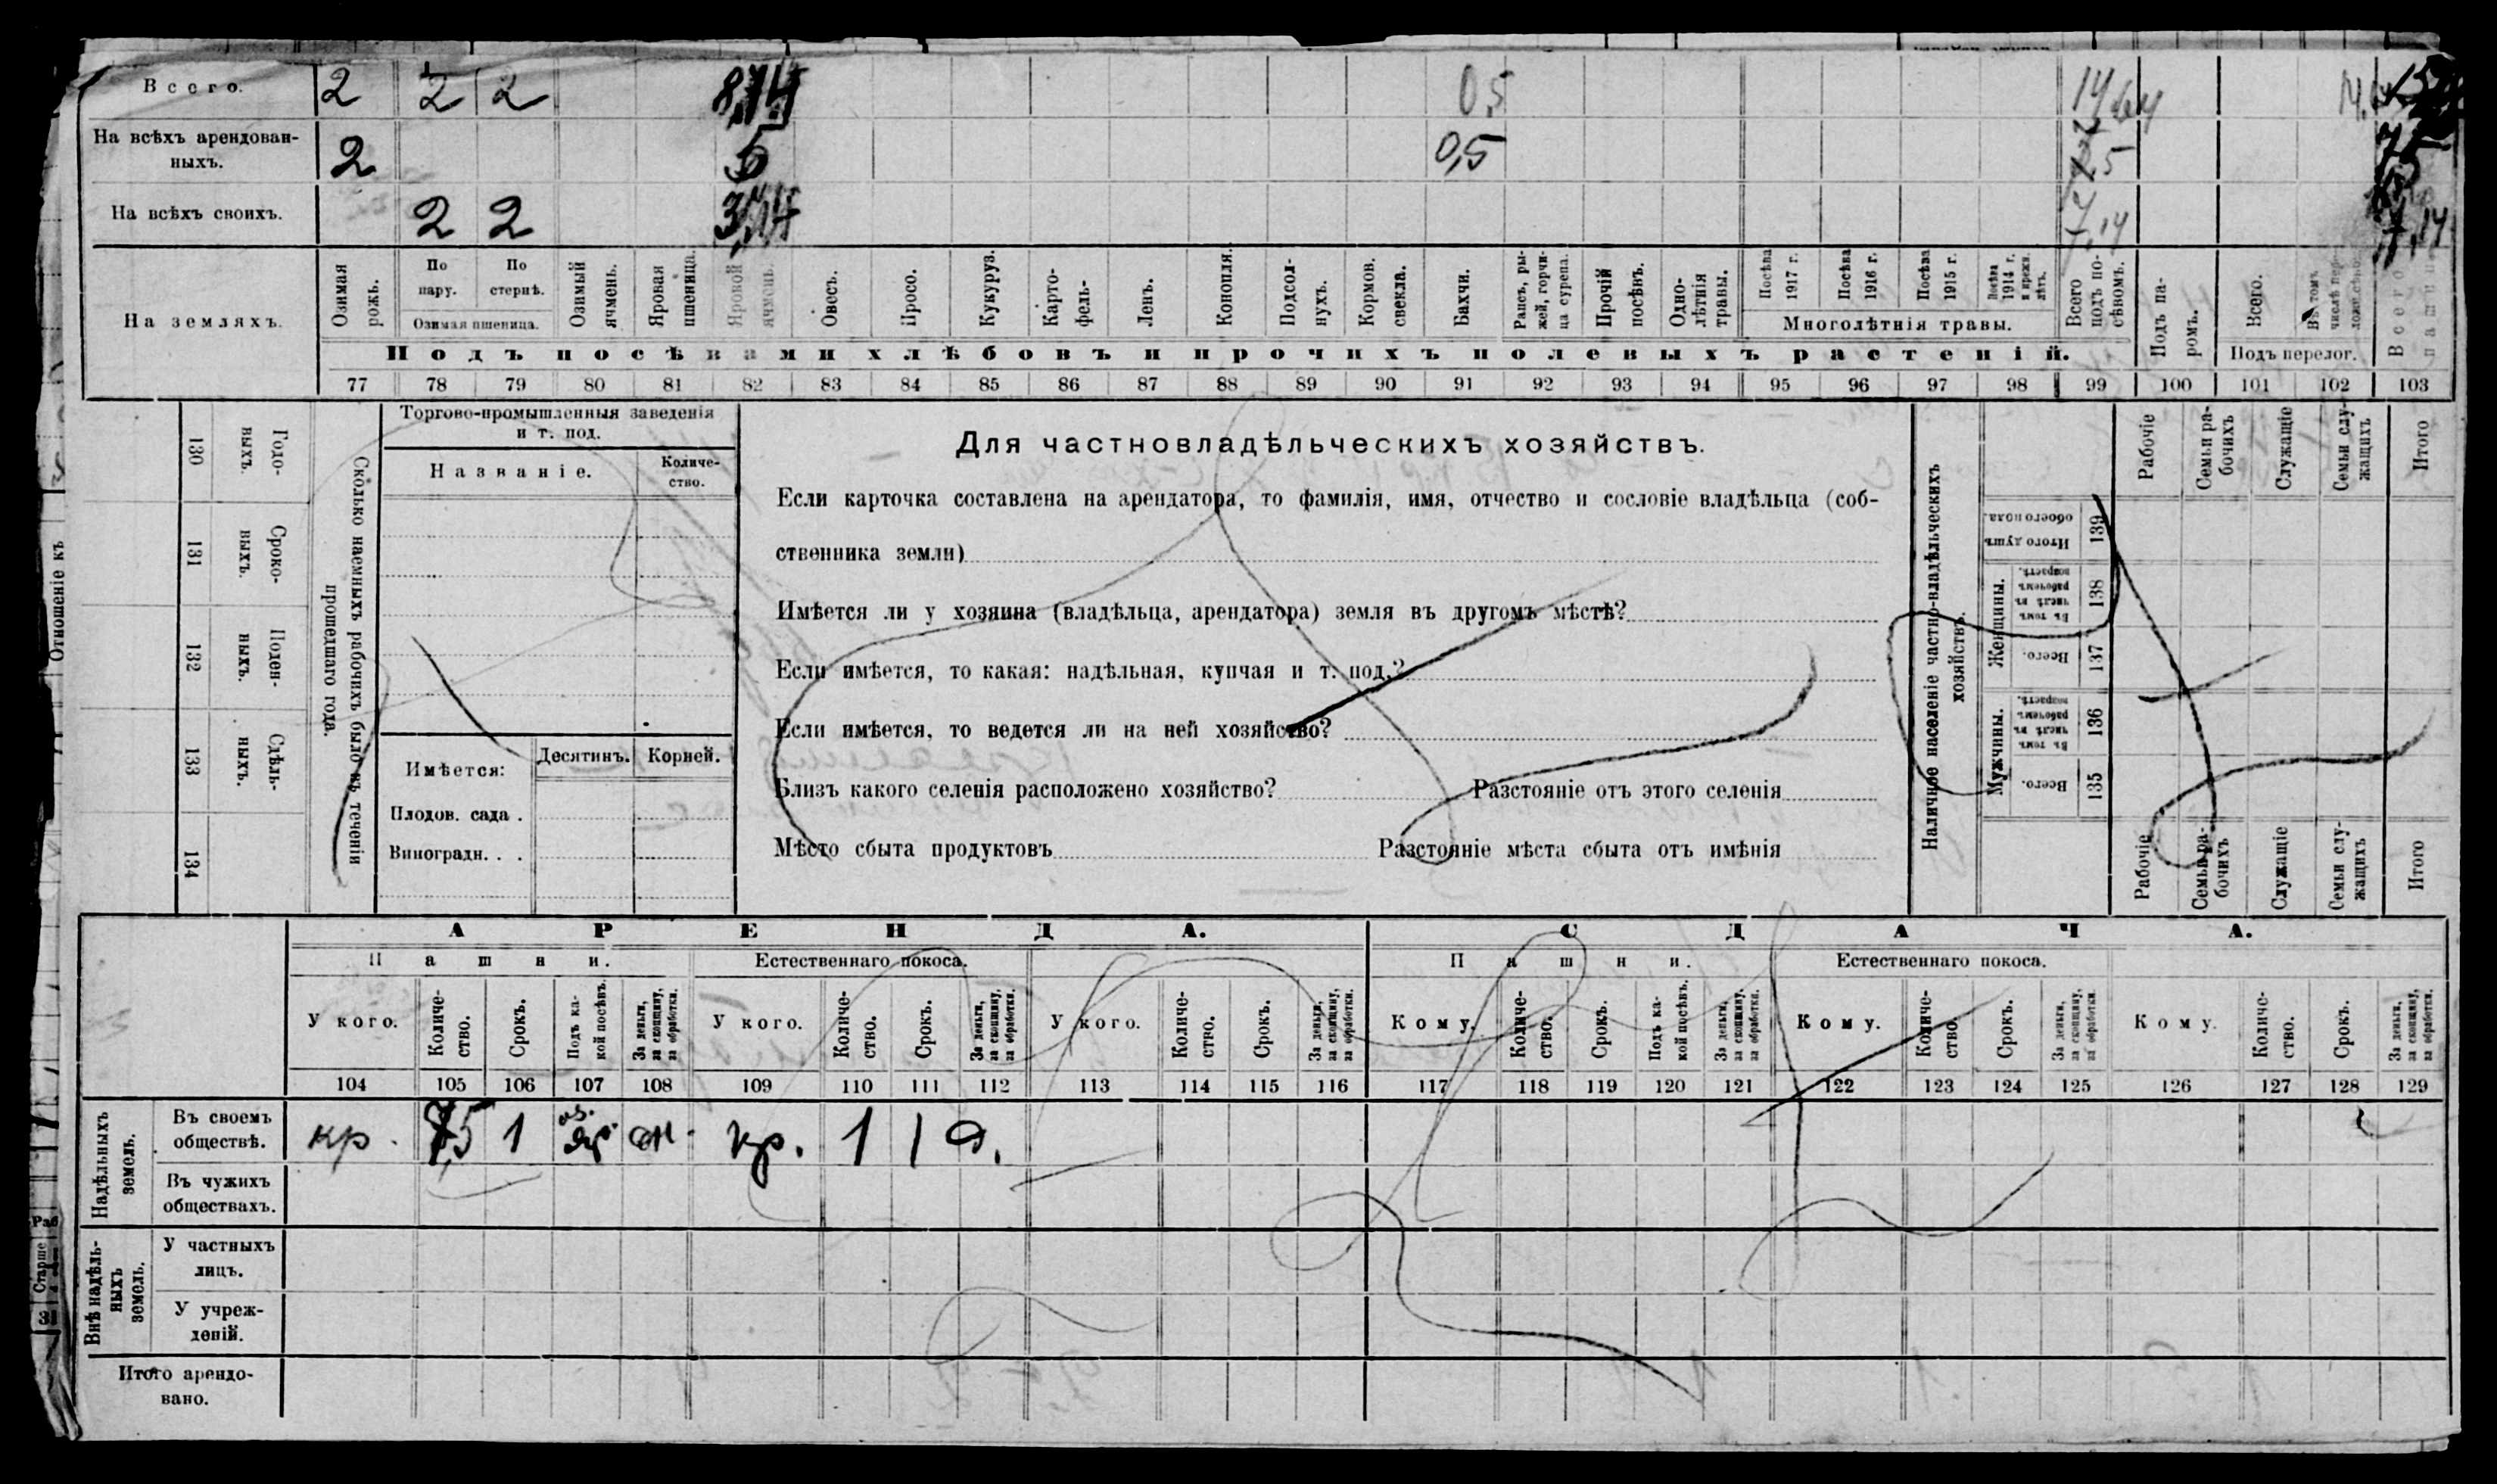 Всего. 2 2 2 8,14 0,5 14,64
На всѣхъ арендован-
ныхъ. 2 5 0,5 7,5
На всѣхъ своихъ. 2 2 3,14 7,14 7,14
На земляхъ.
Озимая рожь.
По пару.
По стернѣ.
Озимая пшеница.
Озимый ячмень.
Яровая пшеница.
Яровой ячмень.
Овесъ.
Просо.
Кукуруз.
Карто-
фель-
Ленъ.
Конопля.
Подсол-
нухъ.
Кормов.
свекла.
Бахчи.
Рапсъ, ры-
жей, горчи-
ца сурепа.
Прочій
посѣвъ.
Одно-
лѣтнія
травы.
Посѣва
1917 г.
Посѣва
1916 г.
Посѣва
1915 г.
Посѣва
1914 г.
и прежн.
лѣтъ.
Многолѣтнія травы.
Всего
подъ по-
сѣвомъ.
Подъ па-
ромъ.
Всего.
Въ томъ
числѣ пер-
Подъ перелог.
Всего
пашни.
Подъ посѣвами хлѣбовъ и прочихъ полевыхъ растеній.
77 78 79 80 81 82 83 84 85 86 87 88 89 90 91 92 93 94 95 96 97 98 99 100 101 102 103
Отношеніе къ
130 131 132 133 134
Годо-
выхъ.
Сроко-
выхъ.
Поден-
ныхъ.
Сдѣль-
ныхъ.
Сколько наемныхъ рабочихъ было въ теченіи
прошедшаго года.
Торгово-промышленныя заведенія
и т. под.
Названіе.
Количе-
ство.
Имѣется:
Десятинъ.
Корней.
Плодов. сада .
Виноградн. . .
Для частновладѣльческихъ хозяйствъ.
Если карточка составлена на арендатора, то фамилія, имя, отчество и сословіе владѣльца (соб-
ственника земли)
Имѣется ли у хозяина (владѣльца, арендатора) земля въ другомъ мѣстѣ?
Если имѣется, то какая: надѣльная, купчая и т. под.?
Если имѣется, то ведется ли на ней хозяйство?
Близъ какого селенія расположено хозяйство? Разстояніе отъ этого селенія
Мѣсто сбыта продуктовъ Разстояніе мѣста сбыта отъ имѣнія
Наличное населеніе частно-владѣльческихъ
хозяйствъ.
Итого душъ
обоего пола.
139
Женщины.
Въ томъ
числѣ въ
рабочемъ
возрастѣ.
138
Всего.
137
Мужчины.
Въ томъ
числѣ въ
рабочемъ
возрастѣ.
136
Всего.
135
Рабочіе
Семьи ра-
бочихъ
Служащіе
Семьи слу-
жащихъ
Итого
Рабочіе
Семьи ра-
бочихъ
Служащіе
Семьи слу-
жащихъ
Итого
АРЕНДА. СДАЧА.
Пашни. Естественнаго покоса. Пашни. Естественнаго покоса.
У кого.
Количе-
ство.
Срокъ.
Подъ ка-
кой посѣвъ.
За деньги,
за скопщину,
за обработки.
У кого.
Количе-
ство.
Срокъ.
За деньги,
за скопщину,
за обработки.
У кого.
Количе-
ство.
Срокъ.
За деньги,
за скопщину,
за обработки.
Кому.
Количе-
ство.
Срокъ.
Подъ ка-
кой посѣвъ.
За деньги,
за скопщину,
за обработки.
Кому.
Количе-
ство.
Срокъ.
За деньги,
за скопщину,
за обработки.
Кому.
Количе-
ство.
Срокъ.
За деньги,
за скопщину,
за обработки.
104 105 106 107 108 109 110 111 112 113 114 115 116 117 118 119 120 121 122 123 124 125 126 127 128 129
Надѣльныхъ
земель.
Въ своемъ
обществѣ.
кр. 7,5 1 оз. яр. кр. 1 1 д.
Въ чужихъ
обществахъ.
Внѣ надѣль-
ныхъ
земель.
У частныхъ
лицъ.
У учреж-
деній.
Итого арендо-
вано.
Раб
Старше